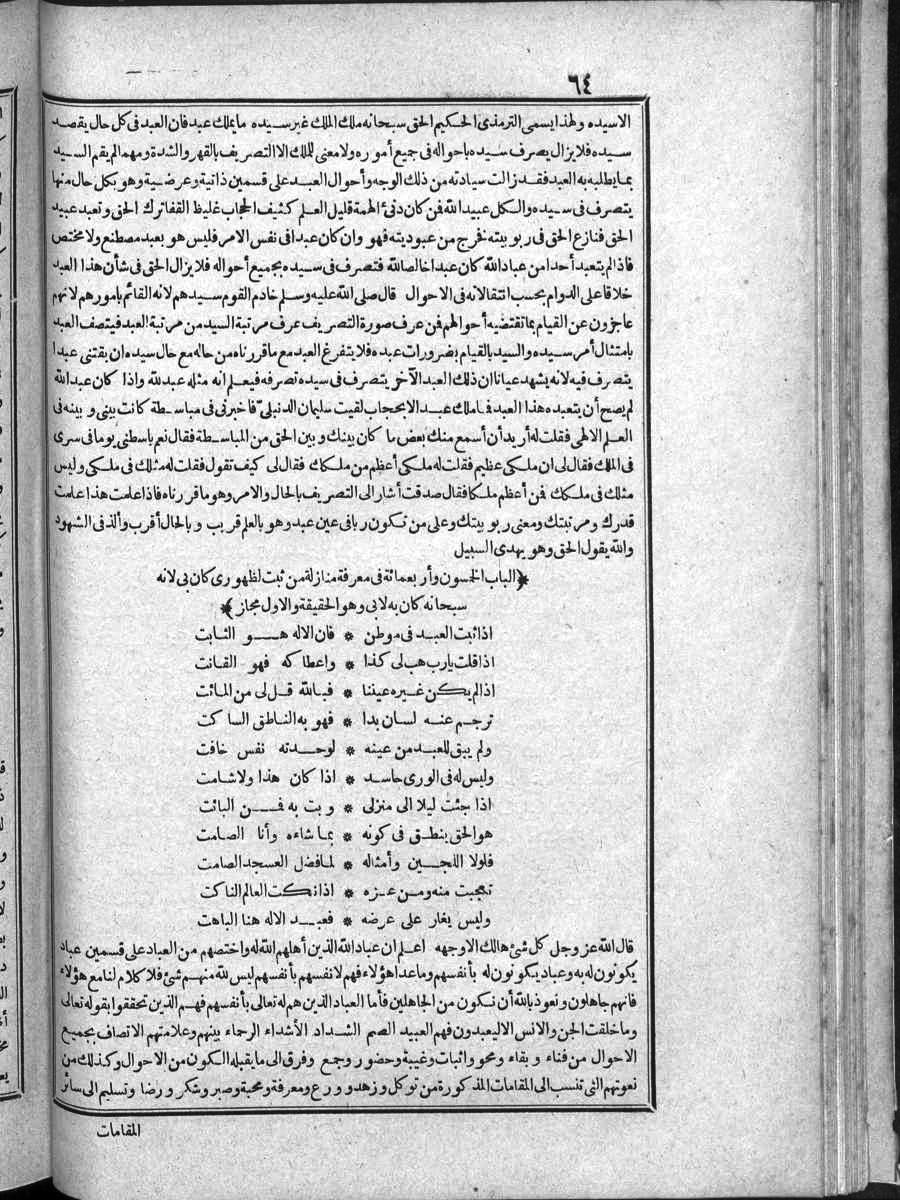 ٦٤
الاسيده ولهذا يسمى الترمذى الحكيم الحق سبحانه ملك الملك غير سيده ما يملك عبد فان العبد فى كل حال يقصد
سيده فلا يزال يصرف سيده باحواله فى جميع أموره ولا معنى للملك الا التصريف بالقهر والشدة ومهما لم يقم السيد
بما يطلبه به العبد فقد زالت سيادته من ذلك الوجه وأحوال العبد على قسمين ذاتية وعرضية وهو بكل حال منها
يتصرف فى سيده والكل عبيد الله فمن كان دنىء الهمة قليل العلم كثيف الحجاب غليظ القفا ترك الحق وتعبد عبيد
الحق فنازع الحق فى ربوبيته فخرج من عبوديته فهو وان كان عبدا فى نفس الامر فليس هو بعبد مصطنع ولا مختص
فاذا لم يتعبد أحدا من عباد الله كان عبدا خالصا لله فتصرف فى سيده بجميع أحواله فلا يزال الحق فى شأن هذا العبد
خلاقا على الدوام بحسب انتقالاته فى الاحوال قال صلى الله عليه وسلم خادم القوم سيدهم لانه القائم بامورهم لانهم
عاجزون عن القيام بما تقتضيه أحوالهم فمن عرف صورة التصريف عرف مرتبة السيد من مرتبة العبد فيتصف العبد
بامتثال أمر سيده والسيد بالقيام بضرورات عبده فلا يتفرغ العبد مع ما قررناه من حاله مع حال سيده ان يقتنى عبدا
يتصرف فيه لانه يشهد عيانا ان ذلك العبد الآخر يتصرف فى سيده تصرفه فيعلم انه مثله عبد لله واذا كان عبد الله
لم يصح أن يتعبده هذا العبد فما ملك عبد الا بحجاب لقيت سليمان الدنبلىّ فاخبرنى فى مباسطة كانت بينى وبينه فى
العلم الالهى فقلت له أريد أن أسمع منك بعض ما كان بينك وبين الحق من المباسطة فقال نعم باسطنى يوما فى سرى
فى الملك فقال لى ان ملكى عظيم فقلت له ملكى أعظم من ملكك فقال لى كيف تقول فقلت له مثلك فى ملكى وليس
مثلك فى ملكك فمن أعظم ملكا فقال صدقت أشار الى التصريف بالحال والامر وهو ما قررناه فاذا علمت هذا علمت
قدرك ومرتبتك ومعنى ربوبيتك وعلى من تكون ربا فى عين عبد وهو بالعلم قريب وبالحال أقرب وألذ فى الشهود
والله يقول الحق وهو يهدى السبيل
﴿الباب الخمسون وأربعمائة فى معرفة منازلة من ثبت لظهورى كان بى لانه
سبحانه كان به لابى وهو الحقيقة والاول مجاز﴾
اذا ثبت العبد فى موطن * فان الاله هو الثابت
اذا قلت يا رب هب لى كذا * واعطا كه فهو القانت
اذا لم يكن غيره عيننا * فبالله قل لى من المائت
ترجم عنه لسان بدا * فهو به الناطق الساكت
ولم يبق للعبد من عينه * لوحدته نفس خافت
وليس له فى الورى حاسد * اذا كان هذا ولا شامت
اذا جئت ليلا الى منزلى * وبت به فمن البائت
هو الحق ينطق فى كونه * بما شاءه وأنا الصامت
فلولا اللجين وأمثاله * لما فضل العسجد الصامت
تعجبت منه ومن عزه * اذا نكت العالم الناكت
وليس يغار على عرضه * فعبد الاله هنا الباهت
قال الله عز وجل كل شئ هالك الا وجهه اعلم ان عباد الله الذين أهلهم الله له واختصهم من العباد على قسمين عباد
يكونون له به وعباد يكونون له بأنفسهم وما عدا هؤلاء فهم لانفسهم بأنفسهم ليس لله منهم شئ فلا كلام لنا مع هؤلاء
فانهم جاهلون ونعوذ بالله أن نكون من الجاهلين فأما العباد الذين هم له تعالى بأنفسهم فهم الذين تحققوا بقوله تعالى
وما خلقت الجن والانس الا ليعبدون فهم العبيد الصم الشداد الأشداء الرحماء بينهم وعلامتهم الاتصاف بجميع
الاحوال من فناء وبقاء ومحو واثبات وغيبة وحضور وجمع وفرق الى ما يقبله الكون من الاحوال وكذلك من
نعوتهم التى تنسب الى المقامات المذكورة من توكل وزهد وورع ومعرفة ومحبة وصبر وشكر ورضا وتسليم الى سائر
المقامات